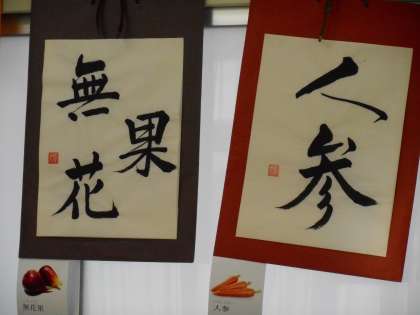 無花果
人参
無花果
人参